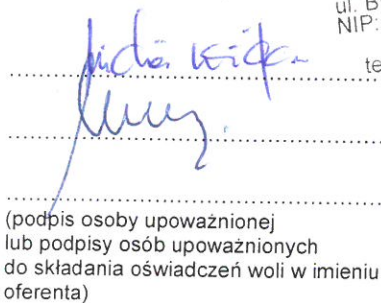 ul. B
NIP:
te
(podpis osoby upoważnionej
lub podpisy osób upoważnionych
do składania oświadczeń woli w imieniu
oferenta)